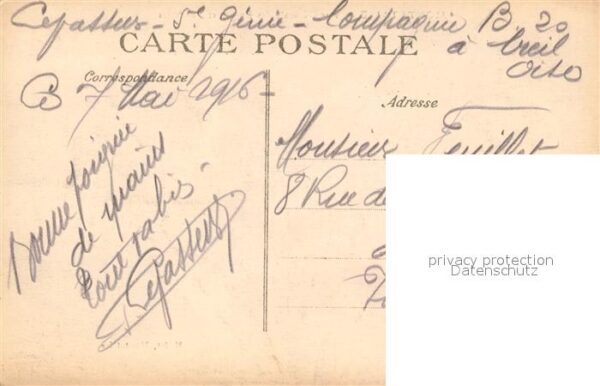 Lepasteur - 5e Génie - Compagnie B. 20
CARTE POSTALE
à Creil
Oise
Correspondance
7 Mai 1916 -
Adresse
Monsieur Feuillet
8 Rue de
Bonne poignée
de mains
Lepasteur
privacy protection
Datenschutz